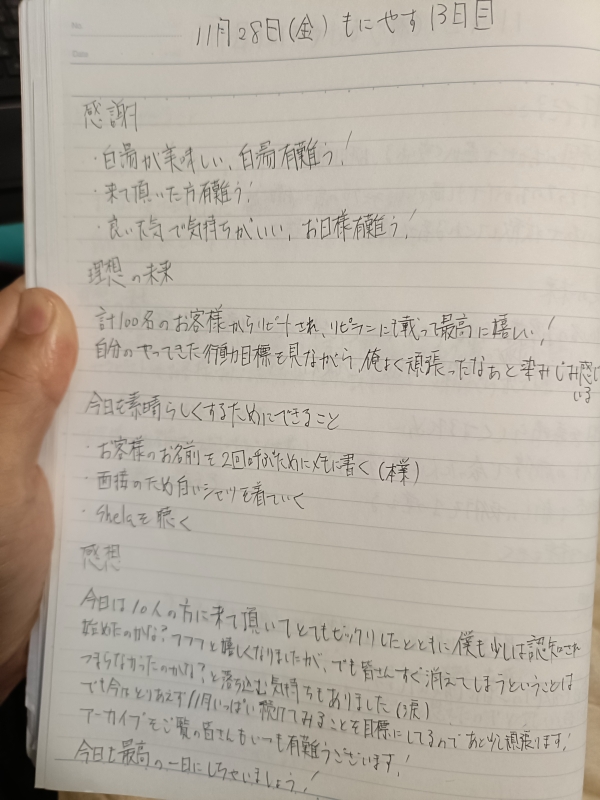 11月28日(金) もにやす 13日目
No.
Date
感謝
・白湯が美味しい、白湯有難う!
・来て頂いた方有難う!
・良い天気で気持ちがいい、お日様有難う!
理想の未来
計100名のお客様からリピートされ、リピランにも載って最高に嬉しい!
自分のやってきた行動目標を見ながら、俺よく頑張ったなぁと染みじみ感じ
いる
今日を素晴らしくするためにできること
・お客様のお名前を2回呼ぶためにメモに書く(本業)
・面接のため白いシャツを着ていく
・Shelaを聴く
感想
今日は10人の方に来て頂いてとてもビックリしたとともに僕も少しは認知され
始めたのかな?フフフと嬉しくなりましたが、でも皆さんすぐ消えてしまうということは
つまらなかったのかな?と落ち込む気持ちもありました(涙)
でも今はとりあえず11月いっぱい続けてみることを目標にしてるのであと少し頑張ります!
アーカイブをご覧の皆さんもいつも有難うございます!
今日も最高の一日にしちゃいましょう!